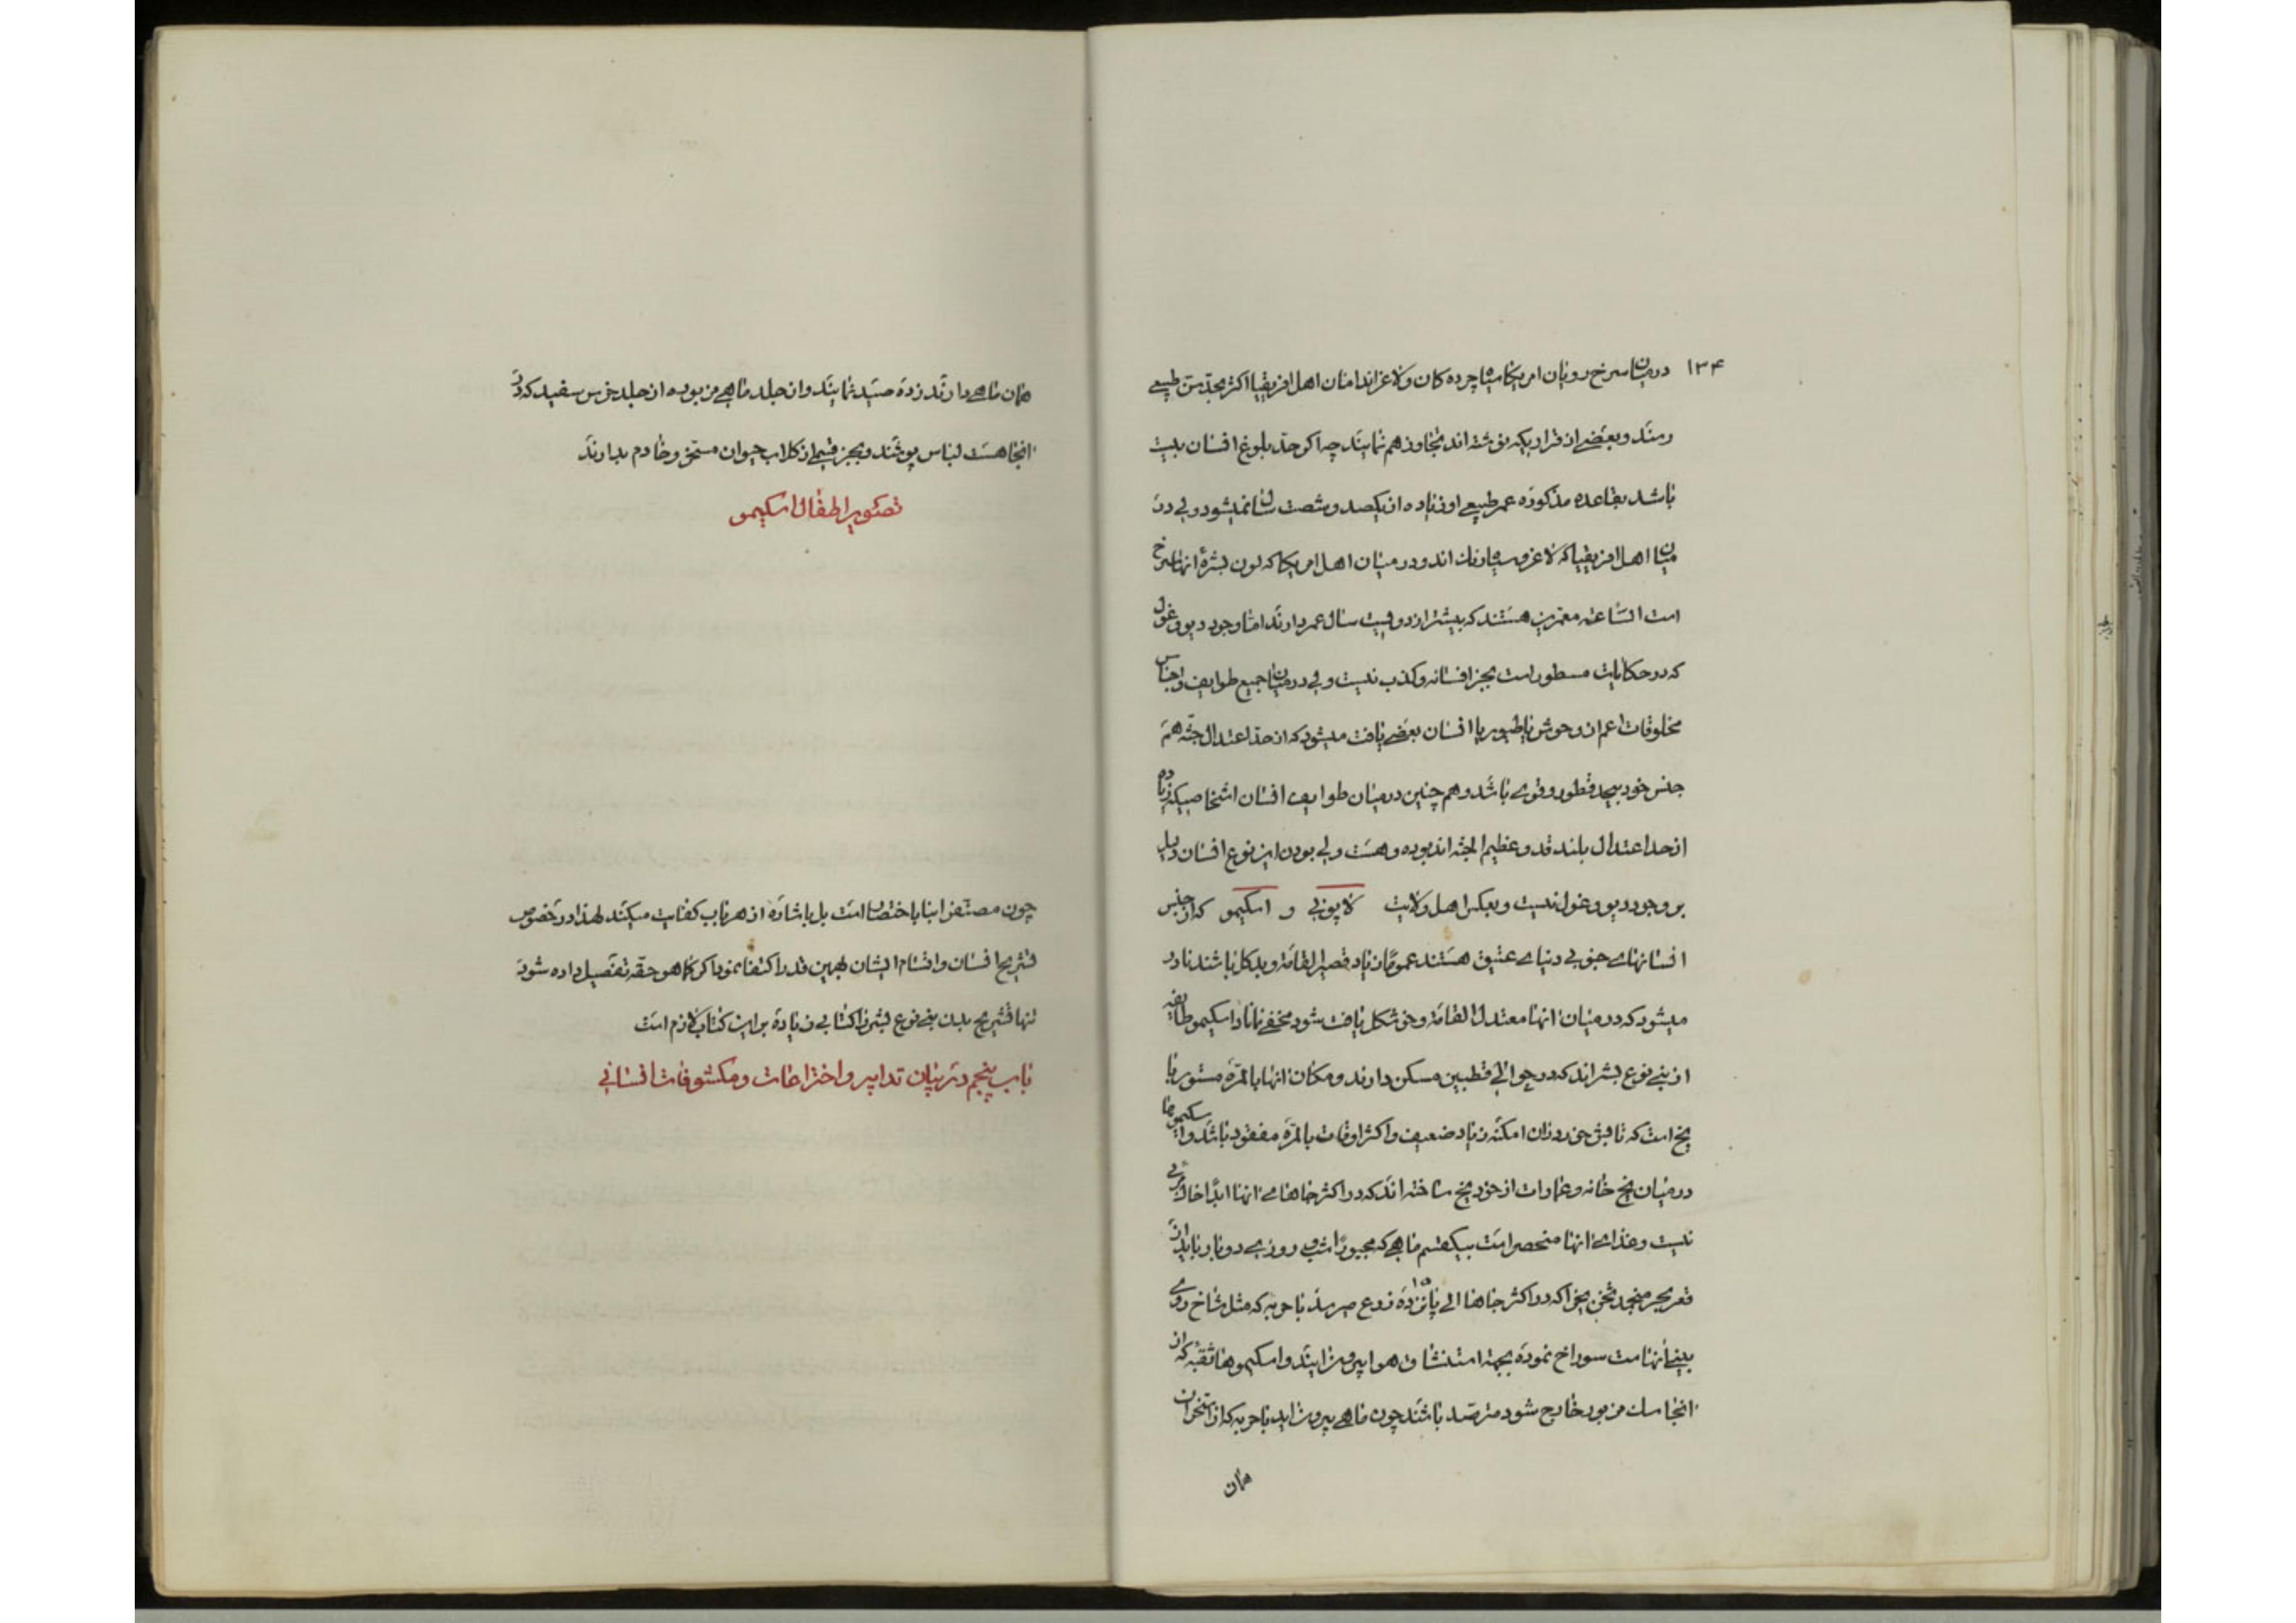 ۱۳۴
درمیان سرخ رویان امریکا و سیاه چرده کان و لاغر اندامان اهل افریقیا اکثر بحد سن طبیعی
رسند و بعضی از قراریکه نوشته اند تجاوز هم نمایند چه اگر حد بلوغ انسان بیست
باشد بقاعده مذکوره عمر طبیعی او زیاده از یکصد و شصت سال نمیشود ولی در
میان اهل افریقیا که لاغر و سیاه اند و در میان اهل امریکا که لون بشرهٔ انها سرخ
است الساعه معمرین هستند که بیشتر از دویست سال عمر دارند اما وجود دیو و غول
که در حکایات مسطور است بجز افسانه و کذب نیست ولی در میان جمیع طوایف و اجناس
مخلوقات اعم از وحوش یا طیور یا انسان بعضی یافت میشود که از حد اعتدال جثه هم
جنس خود بیحد قطور و قوی باشد و هم چنین در میان طوایف انسان اشخاصیکه زیاده
از حد اعتدال بلند قد و عظیم الجثه اند بوده و هست ولی بودن این نوع انسان دلیل
بر وجود دیو و غول نیست و بعکس اهل ولایت لاپونی و اسکیمو که از جنس
انسانهای جنوبی دنیای عتیق هستند عموما زیاد قصیر القامة و بد کل باشند نادر
میشود که در میان انها معتدل القامة و خوشکل یافت شود مخفی نماناد اسکیمو طایفه
از بنی نوع بشر اند که در حوالی قطبین مسکن دارند و مکان انها بالمره مستور با
یخ است که تابش خور در ان امکنه زیاد ضعیف و اکثر اوقات بالمره مفقود باشد و اسکیموها
در میان یخ خانه و عمارات از خود یخ ساخته اند که در اکثر جاهای انها ابدا خاک مرئی
نیست و غذای انها منحصر است بیکقسم ماهی که مجبورا شب و روزی دو بار باید از
قعر بحر منجمد ثخن یخ را که در اکثر جاها الی پانزده ۱۵ ذرع میرسد با حربه که مثل شاخ روی
بینی انهاست سوراخ نموده بجهة استنشاق هوا بیرون ایند و اسکیموها ثقبه که از
انجا سمک مزبور خارج شود مترصد باشند چون ماهی بیرون اید با حربه که از استخوان
همان
همان ماهی دارند زده صید نمایند و از جلد ماهی مزبوره از جلد خرس سفید که در
انجا هست لباس پوشند و بجز قسمی از کلاب حیوان مسخر و خادم ندارند
تصویر اطفال اسکیمو
چون مصنف را بنا باختصار است بل باشاره از هر باب کفایت میکند لهذا در خصوص
تشریح انسان و اقسام ایشان بهمین قدر اکتفا نمود اگر کما هو حقه تفصیل داده شود
تنها تشریح بدن بنی نوع بشر را کتابی زیاده بر این کتاب لازم است
باب پنجم در بیان تدابیر و اختراعات و مکشوفات انسانی